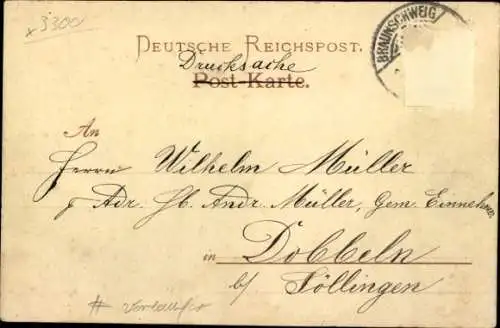 x 3300
BRAUNSCHWEIG
DEUTSCHE REICHSPOST.
Drucksache
Post-Karte.
An
Herrn Wilhelm Müller
p Adr. Hb. Andr. Müller, Gem. Einnehmer
in Dobbeln
b/ Söllingen
# Vorläufer